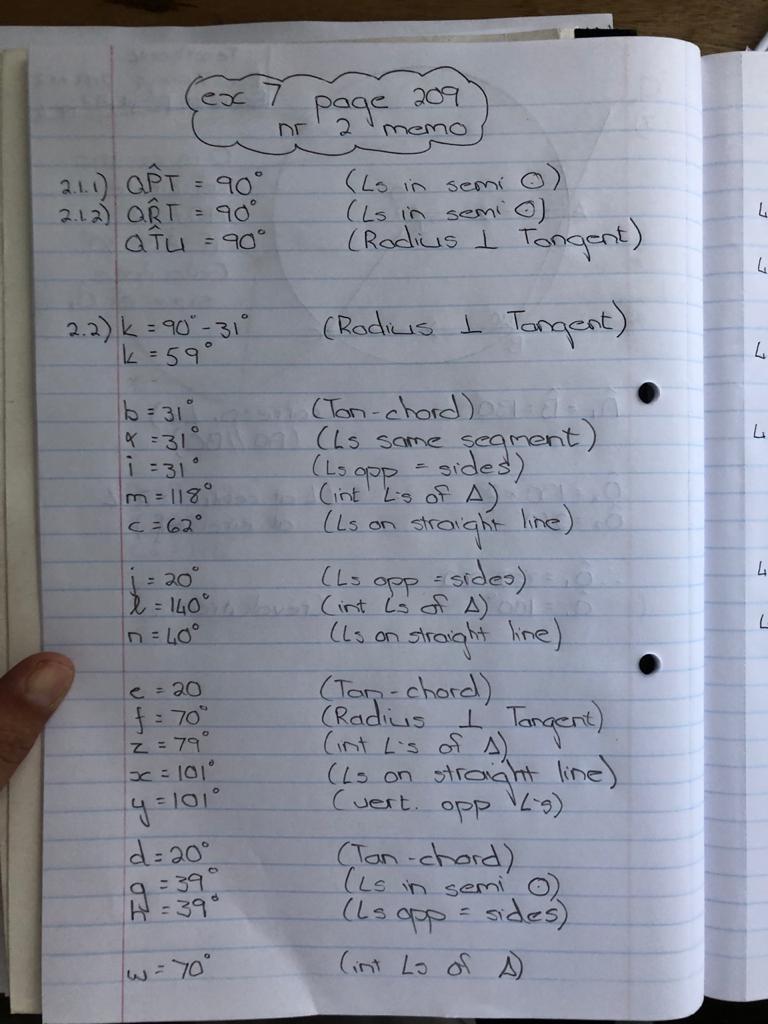 ex 7 page 209
nr 2 memo
2.1.1) QP̂T = 90° (∠s in semi ⊙)
2.1.2) QR̂T = 90° (∠s in semi ⊙)
QT̂U = 90° (Radius ⊥ Tangent)
2.2) k = 90° - 31° (Radius ⊥ Tangent)
k = 59°
b = 31° (Tan-chord)
a = 31° (∠s same segment)
i = 31° (∠s opp = sides)
m = 118° (int ∠'s of Δ)
c = 62° (∠s on straight line)
j = 20° (∠s opp = sides)
l = 140° (int ∠s of Δ)
n = 40° (∠s on straight line)
e = 20 (Tan-chord)
f = 70° (Radius ⊥ Tangent)
z = 79° (int ∠'s of Δ)
x = 101° (∠s on straight line)
y = 101° (vert. opp ∠'s)
d = 20° (Tan-chord)
g = 39° (∠s in semi ⊙)
h = 39° (∠s opp = sides)
w = 70° (int ∠s of Δ)